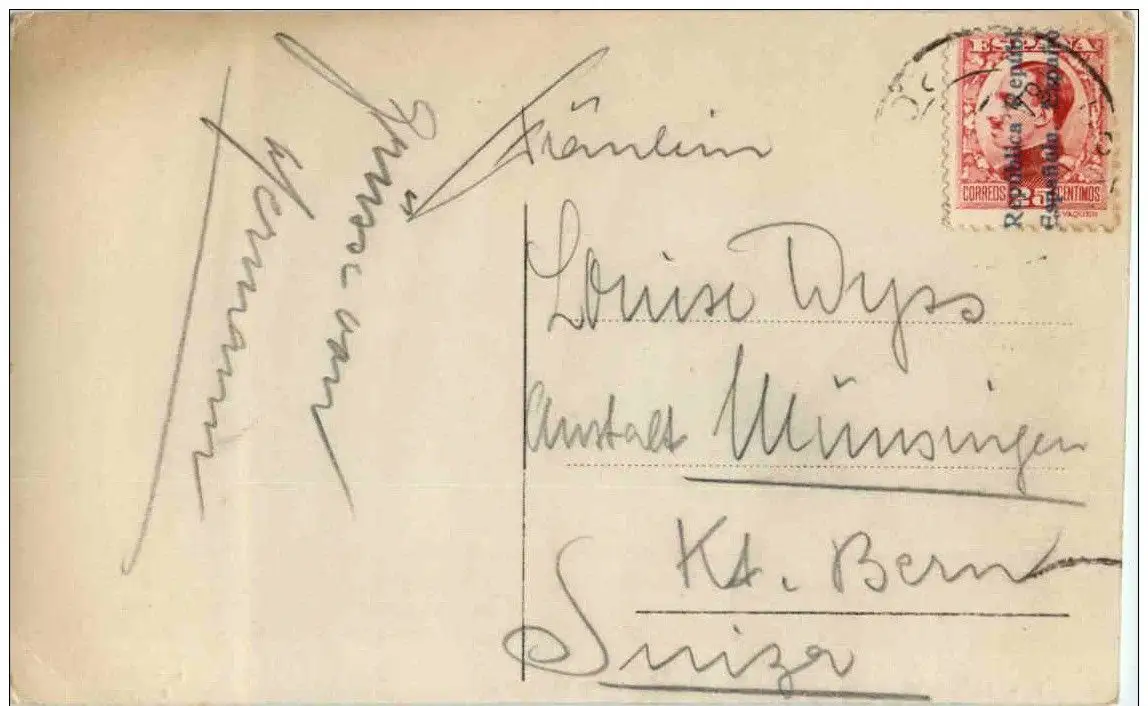 Grüsse von
Hermann
Fräulein
Louise Wyss
Anstalt Münsingen
Kt. Bern
Suiza
ESPAÑA
CORREOS 25 CENTIMOS
República
Española